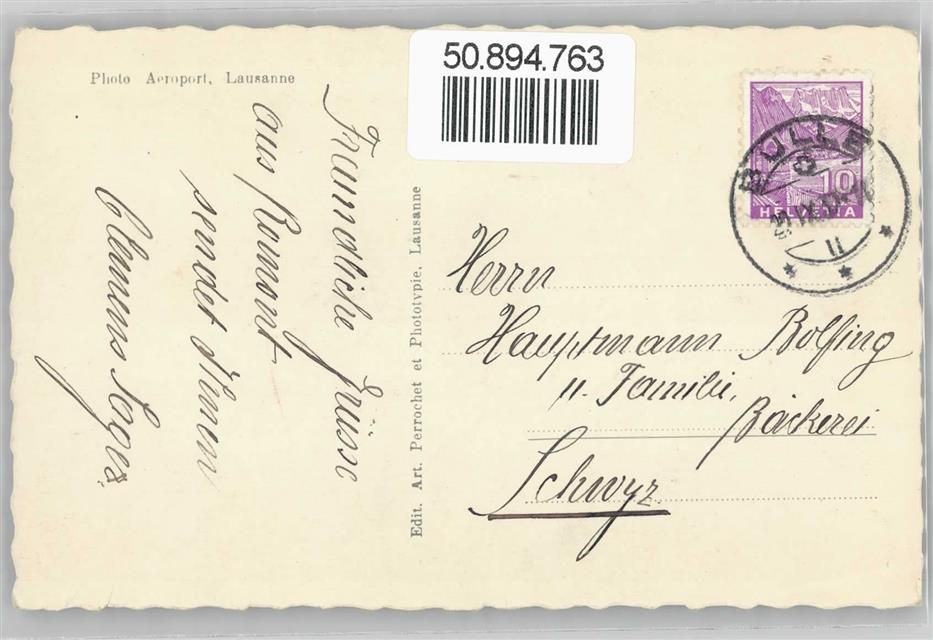 Photo Aeroport, Lausanne
50.894.763
Freundliche Grüsse
aus Romont
sendet Ihnen
Clemens
Edit. Art. Perrochet et Phototypie, Lausanne
BULLE
10
HELVETIA
Herrn
Hauptmann Bolfing
u. Familie,
Bäckerei
Schwyz.